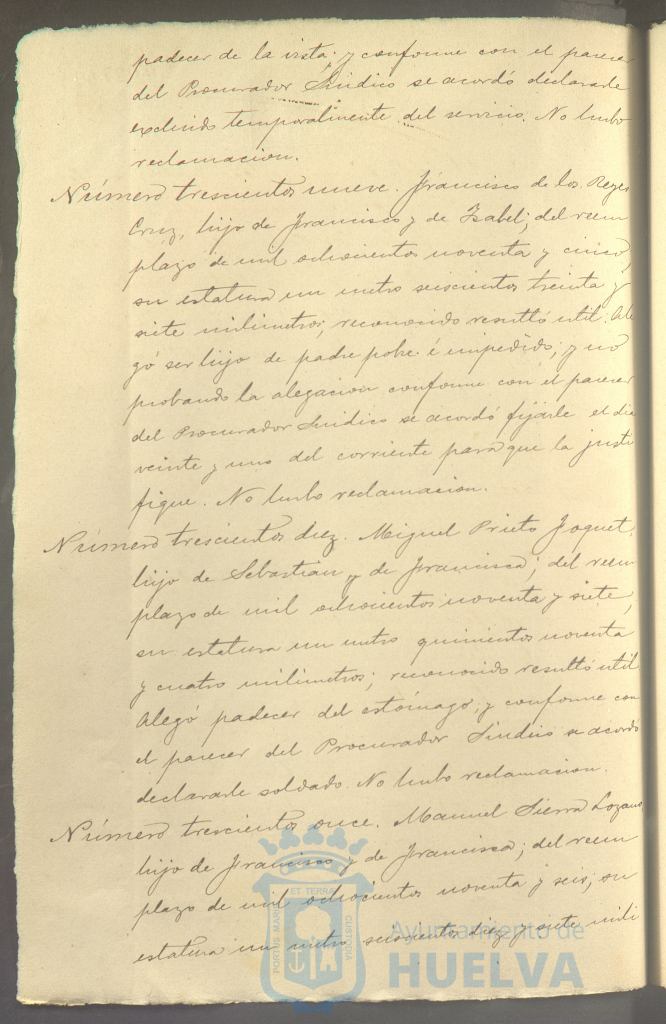 padecer de la vista; y conforme con el parecer
del Procurador Síndico se acordó declararle
excluido temporalmente del servicio. No hubo
reclamacion.
Número trescientos nueve. Francisco de los Reyes
Cruz, hijo de Francisco y de Isabel; del reem
plazo de mil ochocientos noventa y cinco,
su estatura un metro seiscientos treinta y
siete milimetros; reconocido resultó util. Ale
gó ser hijo de padre pobre é impedido; y no
probando la alegacion conforme con el parecer
del Procurador Sindico se acordó fijarle el dia
veinte y uno del corriente para que la justi
fique. No hubo reclamacion.
Número trescientos diez. Miguel Prieto Joquet,
hijo de Sebastian y de Francisca; del reem
plazo de mil ochocientos noventa y siete,
su estatura un metro quinientos noventa
y cuatro milimetros; reconocido resultó util
Alegó padecer del estómago; y conforme con
el parecer del Procurador Sindico se acordó
declararle soldado. No hubo reclamacion.
Número trescientos once. Manuel Sierra Lozano
hijo de Francisco y de Francisca; del reem
plazo de mil ochocientos noventa y seis; su
estatura un metro seiscientos diez y siete mili
PORTUS MARIS ET TERRAE CUSTODIA
Ayuntamiento de
HUELVA